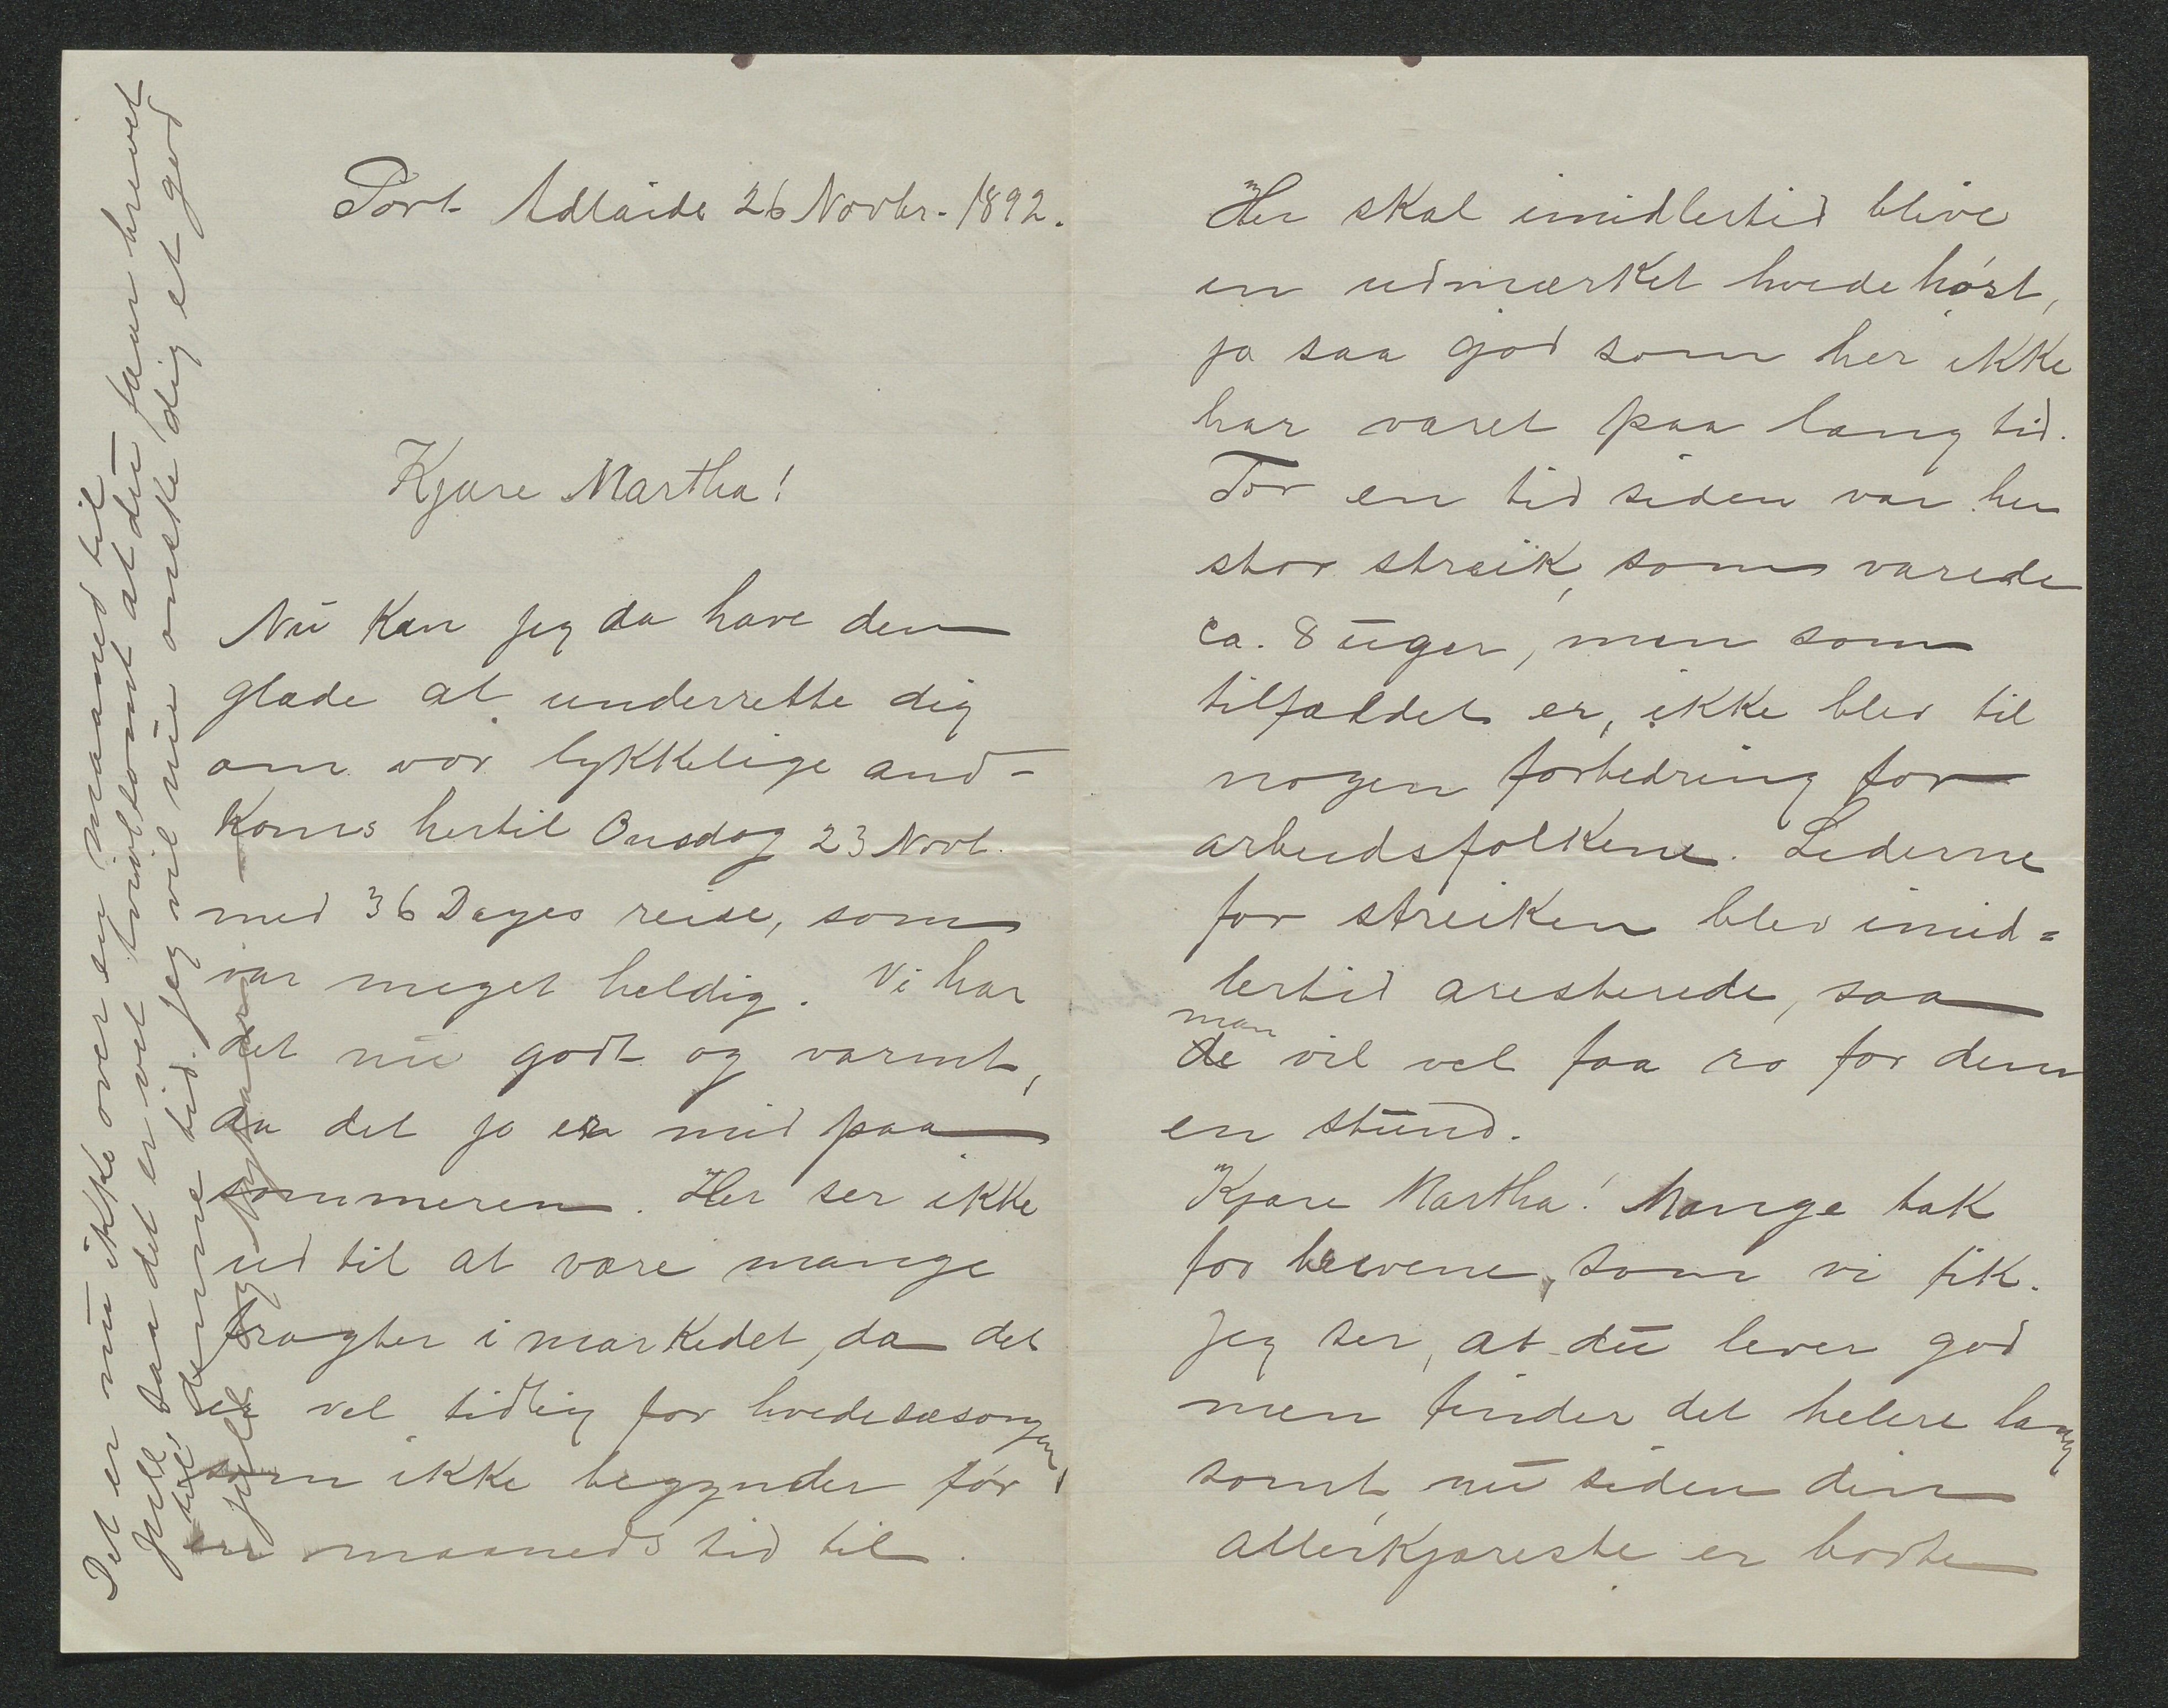 Port Adlaide 26 Novbr. 1892.
Kjære Martha!
Nu kan jeg da have den
glæde at underrette dig
om vor lykkelige and-
komst hertil Onsdag 23 Novb.
med 36 Dages reise, som
var meget heldig. Vi har
det nu godt og varmt,
da det jo er mid paa
sommeren. Her ser ikke
ud til at være mange
fragter i markedet, da det
er vel tidlig for hvedesæsongen,
som ikke begynder før
en maaneds tid til.
Her skal imidlertid blive
en udmærket hvede høst,
ja saa god som her ikke
har været paa lang tid.
For en tid siden var her
stor streik, som varede
ca. 8 uger, men som
tilfældet er, ikke blev til
nogen forbedring for
arbeidsfolkene. Lederne
for streiken blev imid=
lertid aresterede, saa
man
de vil vel faa ro for dem
en stund.
Kjære Martha! Mange tak
for brevene, som vi fik.
Jeg ser, at du lever god
men finder det helere lang
somt nu siden din
allerkjæreste er borte
Det er nu ikke over en maaned til
Jull, saa det er vel tvivlsomt at du faar brevet
til denne tid. Jeg vil nu ønske dig et god
jull og Nytaar.